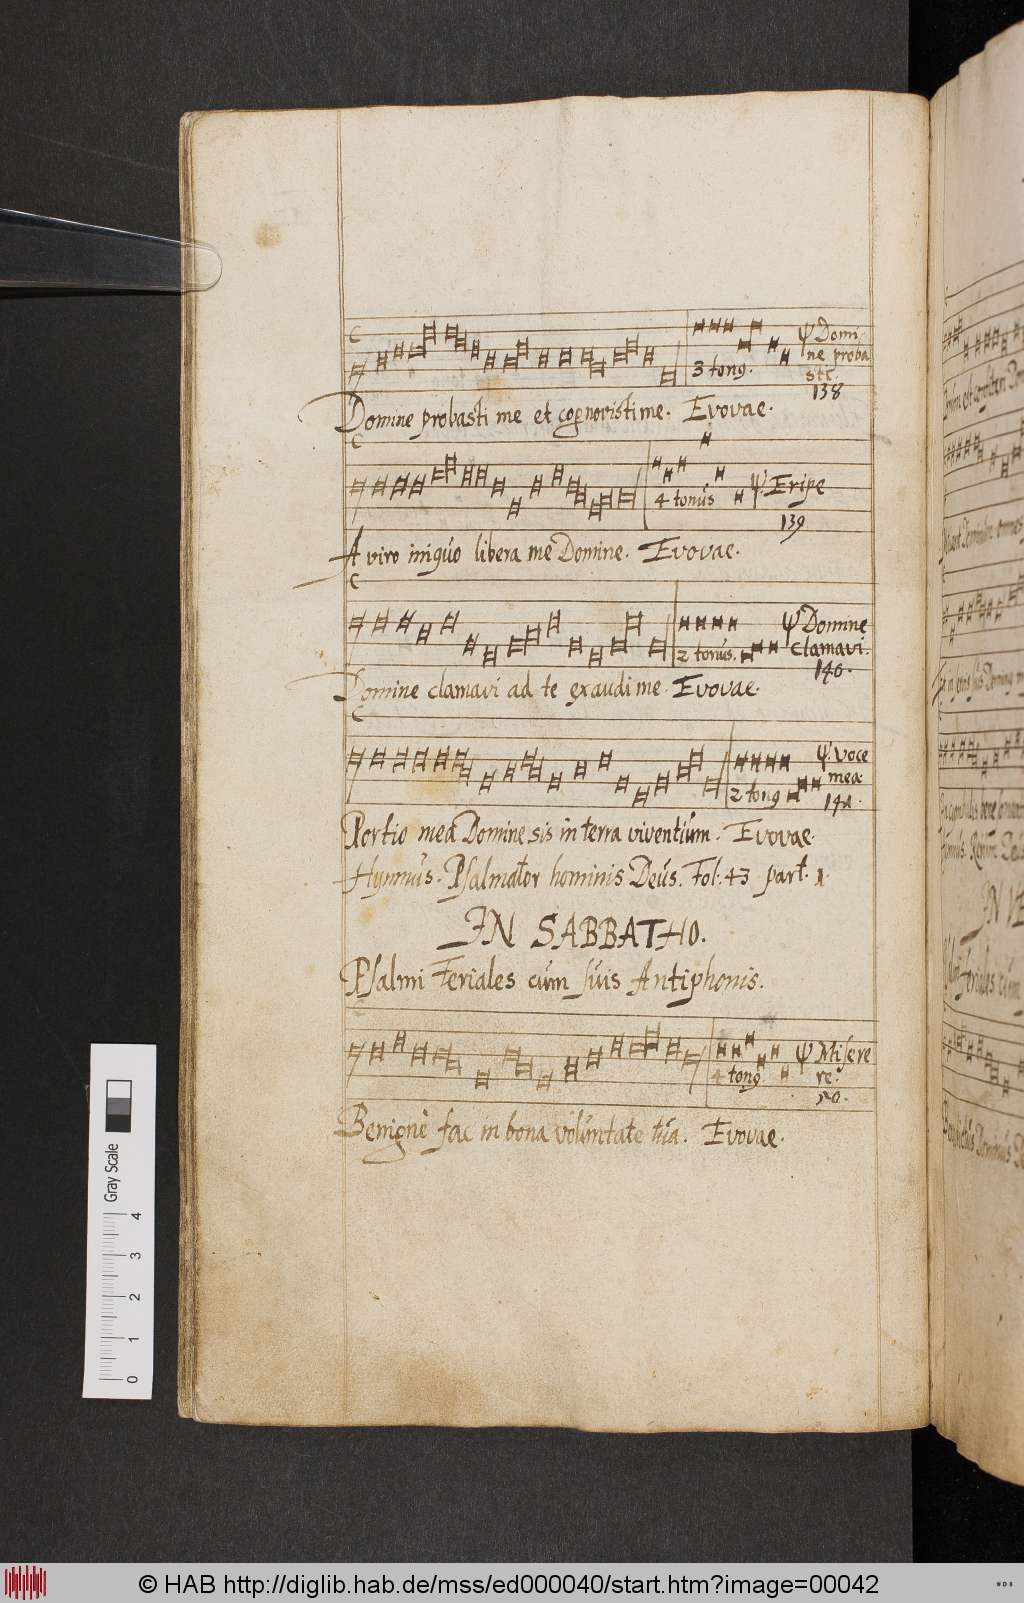 ψ Domi
ne proba
3 tonꝰ. stc.
138
Domine probasti me et cognovisti me. Evovae.
4 tonus ψ. Eripe
139
A viro iniquo libera me Domine. Evovae.
ψ Domine
2 tonus. clamavi.
140.
Domine clamavi ad te exaudi me. Evovae.
ψ. voce
mea
2 tonꝰ 141.
Portio mea Domine sis in terra viventium. Evovae.
Hymnus. Psalmator hominis Deus. Fol. 43 part. 1.
IN SABBATHO.
Psalmi Feriales cum suis Antiphonis.
ψ Misere
4 tonꝰ re.
50.
Benigne fac in bona voluntate tua. Evovae.
Gray Scale
0 1 2 3 4
© HAB http://diglib.hab.de/mss/ed000040/start.htm?image=00042